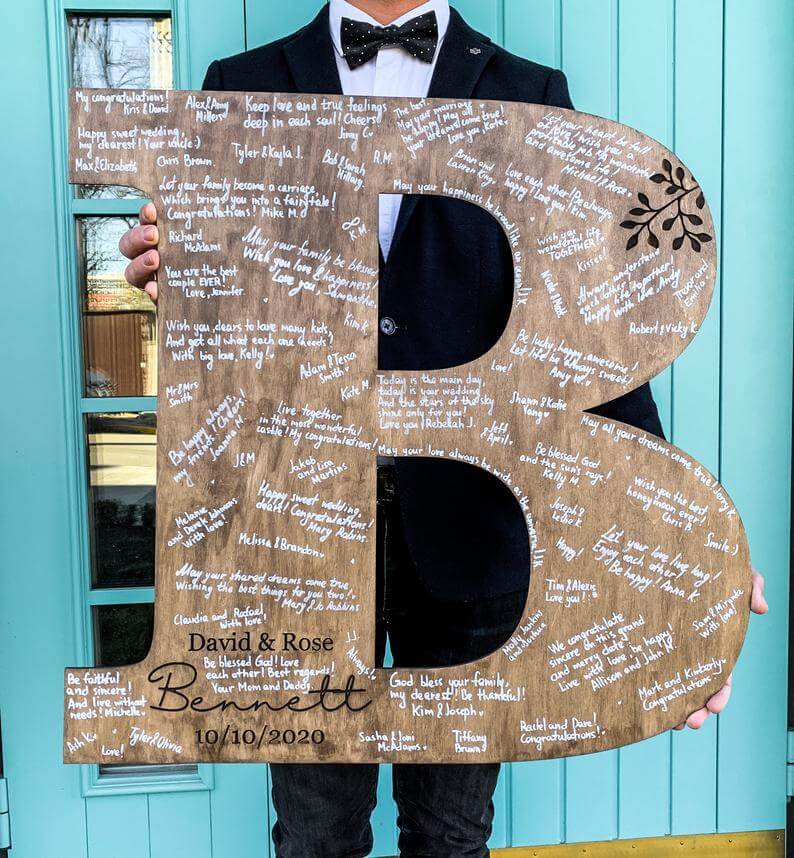 My congratulations!
Kris & David.
Alex & Amy
Millers
Keep love and true feelings
deep in each soul! Cheers!
Jimy C.
The best.
May your marriage
be happy! May all
your dreams come true!
Love you, Kate.
Let your heart be full
of love. Wish you a
and awesome life!
Michael & Rose.
Happy sweet wedding,
my dearest! Your uncle:)
Max & Elizabeth
Chris Brown.
Tyler & Kayla J.
Bob & Sarah
Hillary.
R.M.
Brian and
Lauren King.
Love each other! Be always
happy! Love you! Kim.
Let your family become a carriage
Which brings you into a fairytail!
Congratulations! Mike M.
May your happiness be broad like an ocean! J.K
K.M.
Richard
McAdams
May your family be blessed
Wish you love & happiness!
Love you, Samantha.
Wish you
wonderful life
TOGETHER!
Kisses!
Always understand
each other & together!
Happy life together!
With love, Andy
Trevor and
Emilia
Nicole & Matt
You are the best
couple EVER!
Love, Jennifer.
Robert & Vicky K.
Kim K.
Wish you, dears to have many kids,
And get all what each one needs!
With big love, Kelly!
Be lucky, happy, awesome!
Let life be always sweet!
Amy W.
Adam & Tessa
Smith
Love!
Kate M.
Today is the main day,
today is your wedding
And the stars of the sky
shine only for you!
Love you! Rebekah J.
Mr & Mrs
Smith
Shawn & Katie
Yang
Live together
in the most wonderful
castle! My congratulations!
Be happy always,
my friends! Cheers!
Joanna M.
Jeff
& April
May all your dreams come true! Jerry K.
J & M
Jakob and Lisa
Martins
May your love always be wide as the universe! J.K
Be blessed God
and the sun's rays!
Kelly M.
Wish you the best
honeymoon ever!
Chris B.
Smile :)
Happy sweet wedding,
dears! Congratulations!
Mary Robins
Melanie
and Derek Johnsons
With love!
Joseph &
Lesko K.
Melissa & Brandon
Happy!
Let your love live long!
Enjoy each other!
Be happy! Anna K.
May your shared dreams come true
Wishing the best things for you two!
Mary & Jo Robbins
Tim & Alexis
Love you!
Sam & Miranda
With love!
Claudia and Rafael,
With love!
J.J.
Always!
Molly Jenkins
and Joshua
We congratulate
sincere on this grand
and merry date!
Live with love, be happy
Allison and John M.
David & Rose
Be blessed God! Love
each other! Best regards!
Your Mom and Daddy
Bennett
10/10/2020
Be faithful
and sincere!
And live without
needs! Michelle
God bless your family,
my dearest! Be thankful!
Kim & Joseph
Mark and Kimberly
Congratulations
Ash K.
Love!
Tyler & Olivia
Sasha & Joni
McAdams
Tiffany
Brown
Rachel and Dave!
Congratulations!